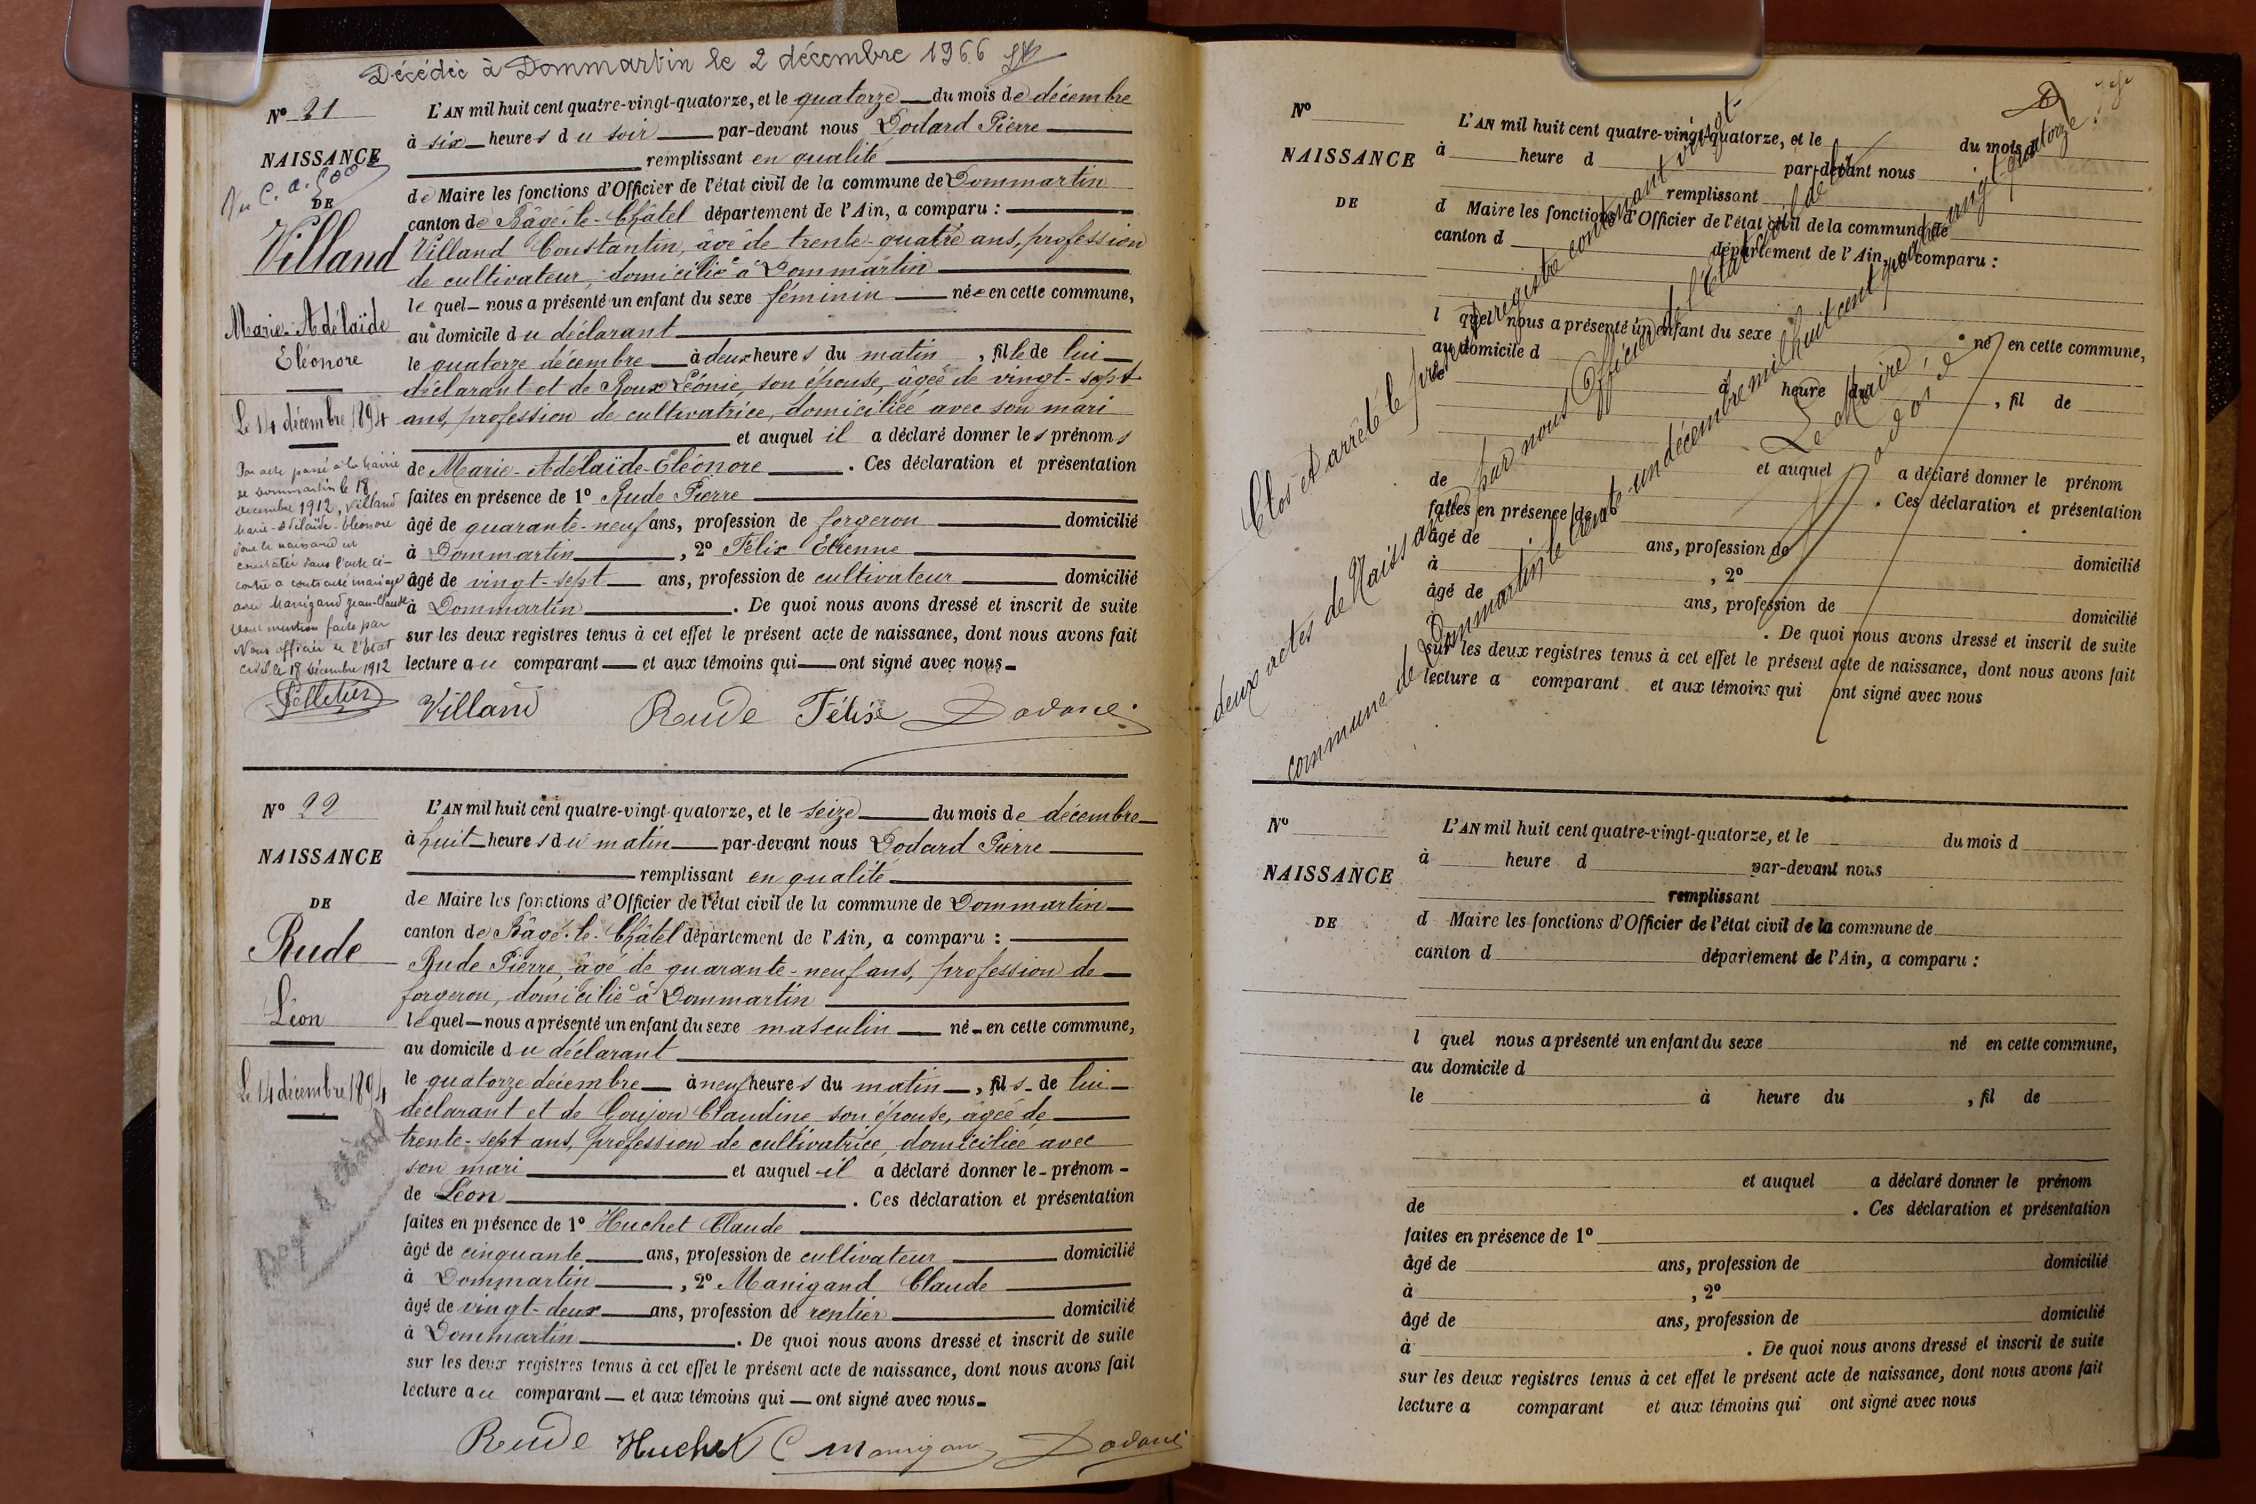 Décédée à Dommartin le 2 décembre 1966
Nº 21
NAISSANCE
DE
Villand
Marie-Adélaïde
Eléonore
Le 14 décembre 1894
Par acte passé à la Mairie
de Dommartin le 18
décembre 1912, Villand
Marie-Adélaïde-Eléonore
dont la naissance est
constatée dans l'acte ci-
contre a contracté mariage
avec Manigand Jean-Claude
mention faite par
Nous officier de l'Etat
Civil le 18 décembre 1912
Pelletier
L'AN mil huit cent quatre-vingt-quatorze, et le quatorze du mois de décembre
à six heures du soir par-devant nous Dodard Pierre
remplissant en qualité
de Maire les fonctions d'Officier de l'état civil de la commune de Dommartin
canton de Bâgé-le-Châtel département de l'Ain, a comparu :
Villand Constantin, âgé de trente-quatre ans, profession
de cultivateur, domicilié à Dommartin
lequel nous a présenté un enfant du sexe féminin née en cette commune,
au domicile du déclarant
le quatorze décembre à deux heures du matin, fille de lui
déclarant et de Roux Léonie, son épouse, âgée de vingt-sept
ans, profession de cultivatrice, domiciliée avec son mari
et auquel il a déclaré donner les prénoms
de Marie-Adélaïde-Eléonore. Ces déclaration et présentation
faites en présence de 1º Rude Pierre
âgé de quarante-neuf ans, profession de forgeron domicilié
à Dommartin, 2º Félix Étienne
âgé de vingt-sept ans, profession de cultivateur domicilié
à Dommartin. De quoi nous avons dressé et inscrit de suite
sur les deux registres tenus à cet effet le présent acte de naissance, dont nous avons fait
lecture au comparant et aux témoins qui ont signé avec nous
Villand Rude Félix Dodard
Nº 22
NAISSANCE
DE
Rude
Léon
Le 14 décembre 1894
L'AN mil huit cent quatre-vingt-quatorze, et le seize du mois de décembre
à huit heures du matin par-devant nous Dodard Pierre
remplissant en qualité
de Maire les fonctions d'Officier de l'état civil de la commune de Dommartin
canton de Bâgé-le-Châtel département de l'Ain, a comparu :
Rude Pierre, âgé de quarante-neuf ans, profession de
forgeron, domicilié à Dommartin
lequel nous a présenté un enfant du sexe masculin né en cette commune,
au domicile du déclarant
le quatorze décembre à neuf heures du matin, fils de lui
déclarant et de Goujon Claudine son épouse, âgée de
trente-sept ans, profession de cultivatrice, domiciliée avec
son mari et auquel il a déclaré donner le prénom
de Léon. Ces déclaration et présentation
faites en présence de 1º Huchet Claude
âgé de cinquante ans, profession de cultivateur domicilié
à Dommartin, 2º Manigand Claude
âgé de vingt-deux ans, profession de rentier domicilié
à Dommartin. De quoi nous avons dressé et inscrit de suite
sur les deux registres tenus à cet effet le présent acte de naissance, dont nous avons fait
lecture au comparant et aux témoins qui ont signé avec nous
Rude Huchet C Manigand Dodard
Nº
NAISSANCE
DE
L'AN mil huit cent quatre-vingt-quatorze, et le du mois d
à heure d par-devant nous
remplissant
d Maire les fonctions d'Officier de l'état civil de la commune de
canton d département de l'Ain, a comparu :
l quel nous a présenté un enfant du sexe né en cette commune,
au domicile d
le à heure du, fil de
et auquel a déclaré donner le prénom
de . Ces déclaration et présentation
faites en présence de
âgé de ans, profession de domicilié
à , 2º
âgé de ans, profession de domicilié
à . De quoi nous avons dressé et inscrit de suite
sur les deux registres tenus à cet effet le présent acte de naissance, dont nous avons fait
lecture a comparant et aux témoins qui ont signé avec nous
Clos et arrêté le présent registre contenant vingt-
deux actes de Naissances par nous Officier de l'Etat civil de la
commune de Dommartin le trente-un décembre mil huit cent quatre-vingt-quatorze.
Le Maire,
Dodard
Nº
NAISSANCE
DE
L'AN mil huit cent quatre-vingt-quatorze, et le du mois d
à heure d par-devant nous
remplissant
d Maire les fonctions d'Officier de l'état civil de la commune de
canton d département de l'Ain, a comparu :
l quel nous a présenté un enfant du sexe né en cette commune,
au domicile d
le à heure du , fil de
et auquel a déclaré donner le prénom
de . Ces déclaration et présentation
faites en présence de 1º
âgé de ans, profession de domicilié
à , 2º
âgé de ans, profession de domicilié
à . De quoi nous avons dressé et inscrit de suite
sur les deux registres tenus à cet effet le présent acte de naissance, dont nous avons fait
lecture a comparant et aux témoins qui ont signé avec nous